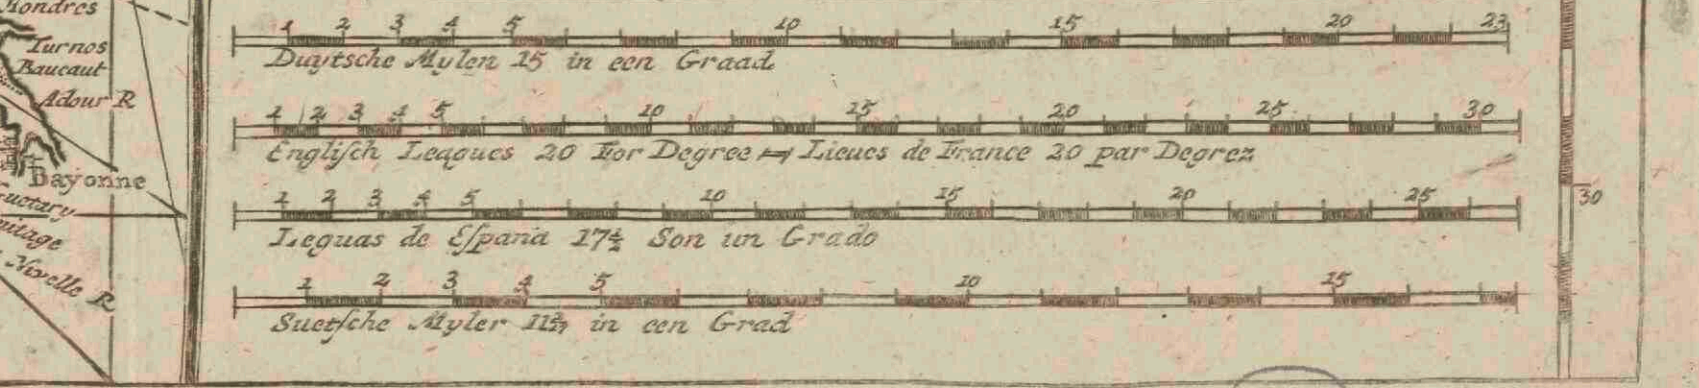 Turnos
Baucaut
Adour R
Bayonne
Nivelle R
1 2 3 4 5 10 15 20 23
Duytsche Mylen 15 in een Graad
1 2 3 4 5 10 15 20 25 30
Engliſch Leagues 20 For Degree Lieues de France 20 par Degrez
1 2 3 4 5 10 15 20 25
Leguas de Eſpana 17½ Son un Grado
1 2 3 4 5 10 15
Suetſche Myler in een Grad
30